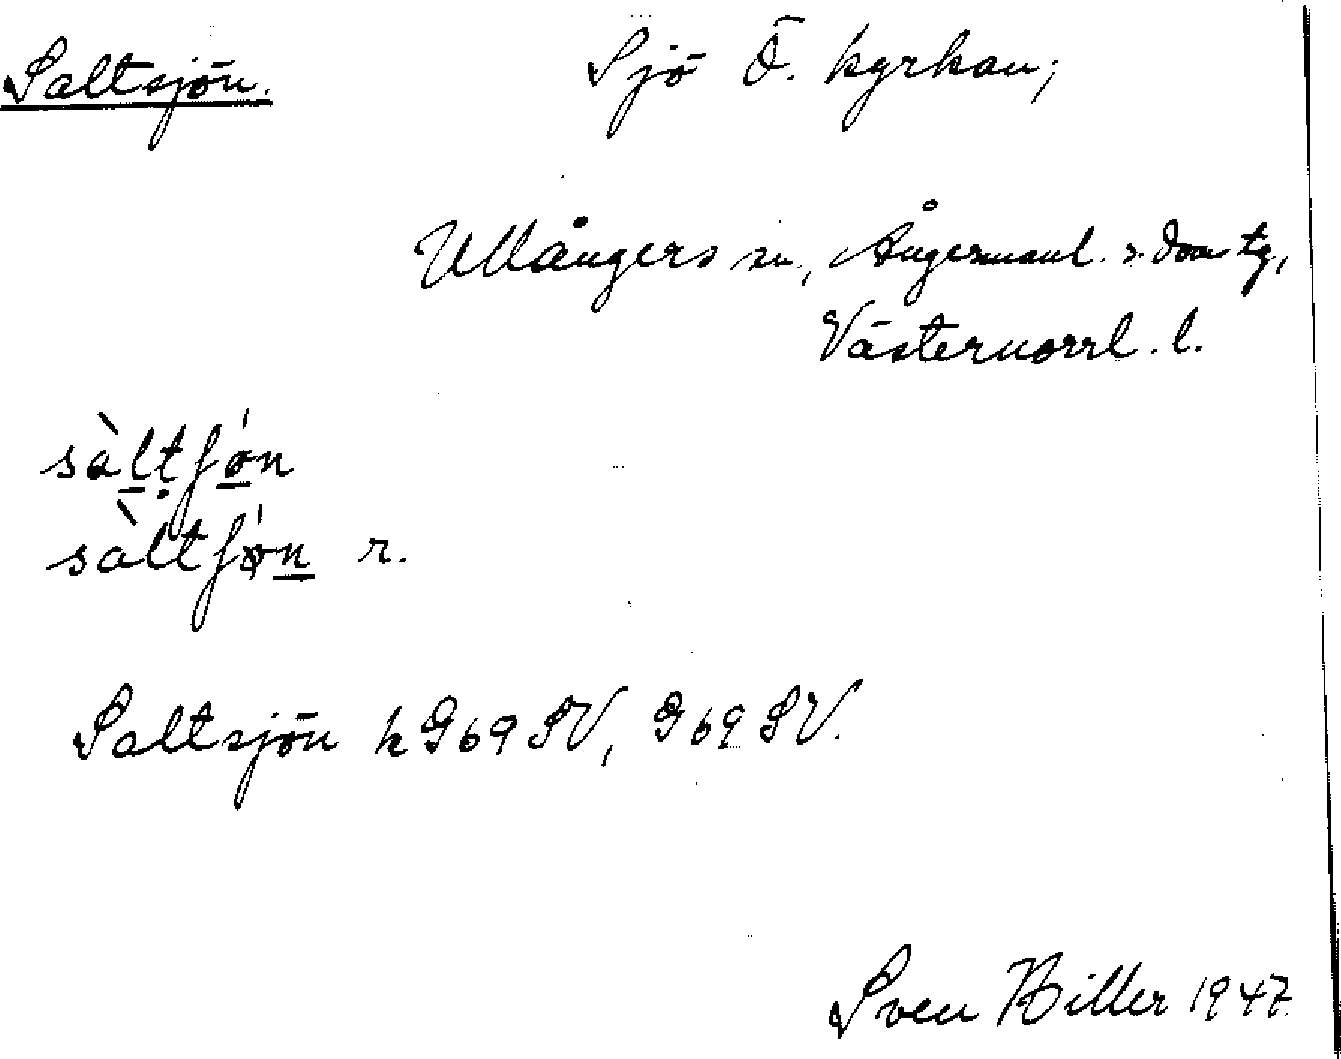 Saltsjön. Sjö Ö. kyrkan;
Ullångers sn, Ångermanl. s. doms tg,
Västernorrl. l.
sàltʃǿn
sàltʃǿn r.
Saltsjön k G69 SV, G69 SV.
Sven Hiller 1947